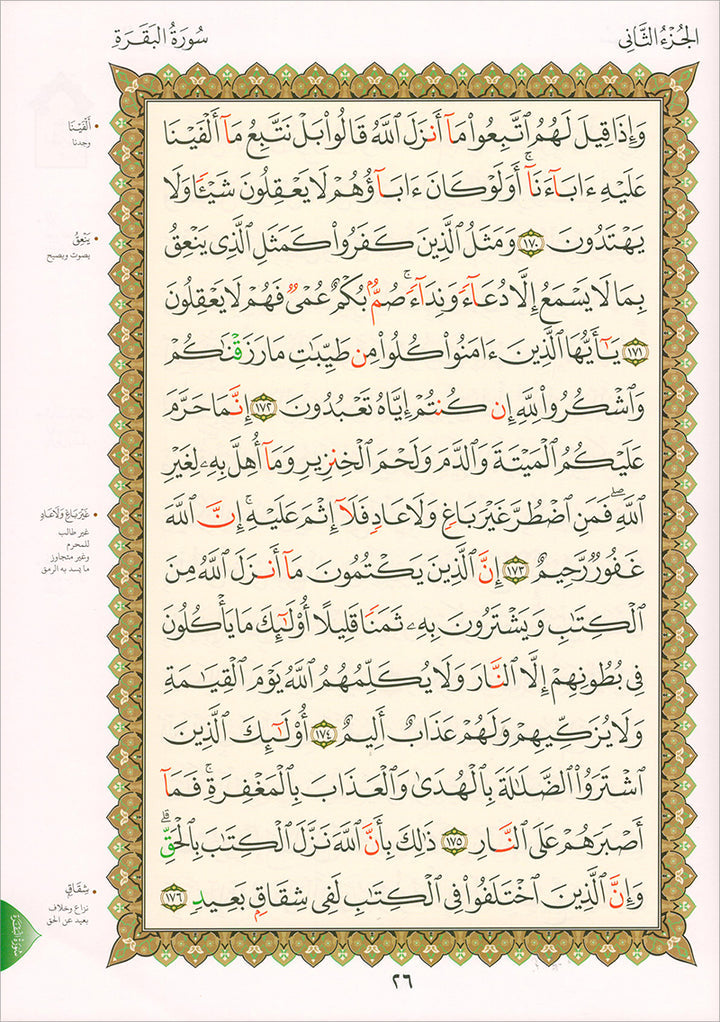 الجُزْءُ الثَّانِي
سُورَةُ البَقَرَةِ
وَإِذَا قِيلَ لَهُمُ ٱتَّبِعُوا۟ مَآ أَنزَلَ ٱللَّهُ قَالُوا۟ بَلْ نَتَّبِعُ مَآ أَلْفَيْنَا
عَلَيْهِ ءَابَآءَنَآ ۗ أَوَلَوْ كَانَ ءَابَآؤُهُمْ لَا يَعْقِلُونَ شَيْـًٔا وَلَا
يَهْتَدُونَ ١٧٠ وَمَثَلُ ٱلَّذِينَ كَفَرُوا۟ كَمَثَلِ ٱلَّذِى يَنْعِقُ
بِمَا لَا يَسْمَعُ إِلَّا دُعَآءً وَنِدَآءً ۚ صُمٌّۢ بُكْمٌ عُمْىٌ فَهُمْ لَا يَعْقِلُونَ
١٧١ يَـٰٓأَيُّهَا ٱلَّذِينَ ءَامَنُوا۟ كُلُوا۟ مِن طَيِّبَـٰتِ مَا رَزَقْنَـٰكُمْ
وَٱشْكُرُوا۟ لِلَّهِ إِن كُنتُمْ إِيَّاهُ تَعْبُدُونَ ١٧٢ إِنَّمَا حَرَّمَ
عَلَيْكُمُ ٱلْمَيْتَةَ وَٱلدَّمَ وَلَحْمَ ٱلْخِنزِيرِ وَمَآ أُهِلَّ بِهِۦ لِغَيْرِ
ٱللَّهِ ۖ فَمَنِ ٱضْطُرَّ غَيْرَ بَاغٍ وَلَا عَادٍ فَلَآ إِثْمَ عَلَيْهِ ۚ إِنَّ ٱللَّهَ
غَفُورٌ رَّحِيمٌ ١٧٣ إِنَّ ٱلَّذِينَ يَكْتُمُونَ مَآ أَنزَلَ ٱللَّهُ مِنَ
ٱلْكِتَـٰبِ وَيَشْتَرُونَ بِهِۦ ثَمَنًا قَلِيلًا أُو۟لَـٰٓئِكَ مَا يَأْكُلُونَ
فِى بُطُونِهِمْ إِلَّا ٱلنَّارَ وَلَا يُكَلِّمُهُمُ ٱللَّهُ يَوْمَ ٱلْقِيَـٰمَةِ
وَلَا يُزَكِّيهِمْ وَلَهُمْ عَذَابٌ أَلِيمٌ ١٧٤ أُو۟لَـٰٓئِكَ ٱلَّذِينَ
ٱشْتَرَوُا۟ ٱلضَّلَـٰلَةَ بِٱلْهُدَىٰ وَٱلْعَذَابَ بِٱلْمَغْفِرَةِ ۚ فَمَآ
أَصْبَرَهُمْ عَلَى ٱلنَّارِ ١٧٥ ذَٰلِكَ بِأَنَّ ٱللَّهَ نَزَّلَ ٱلْكِتَـٰبَ بِٱلْحَقِّ ۗ
وَإِنَّ ٱلَّذِينَ ٱخْتَلَفُوا۟ فِى ٱلْكِتَـٰبِ لَفِى شِقَاقٍۭ بَعِيدٍ ١٧٦
• أَلْفَيْنَا
وجدنا
• يَنْعِقُ
يصوت ويصيح
• غَيْرَ بَاغٍ وَلَا عَادٍ
غير طالب
للمحرم
وغير متجاوز
ما يسد به الرمق
• شِقَاقٍ
نزاع وخلاف
بعيد عن الحق
سُورَةُ البَقَرَةِ
٢٦